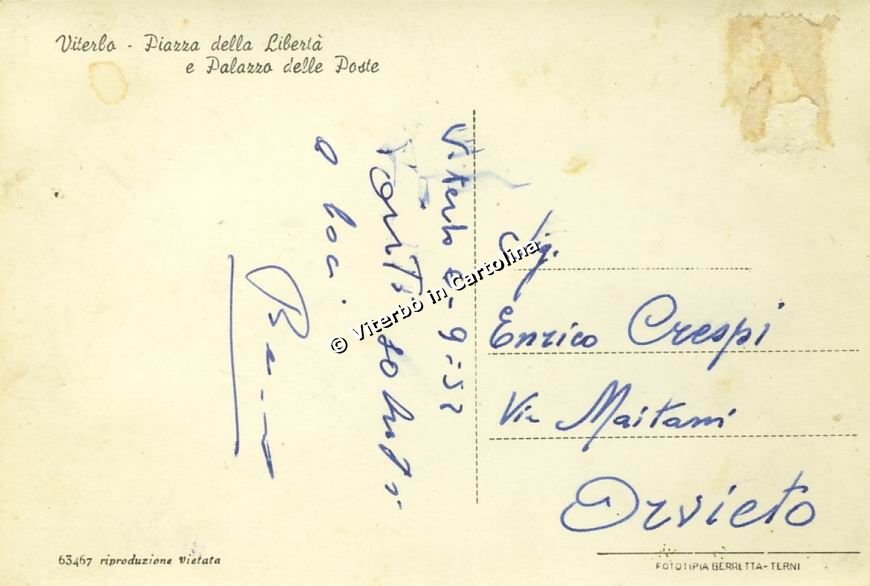 Viterbo - Piazza della Libertà
e Palazzo delle Poste
Viterbo
- 9 - 52
saluti
a voi.
© Viterbo in Cartolina
Sig.
Enrico Crespi
Via Maitani
Orvieto
63467 riproduzione vietata
FOTOTIPIA BERRETTA - TERNI